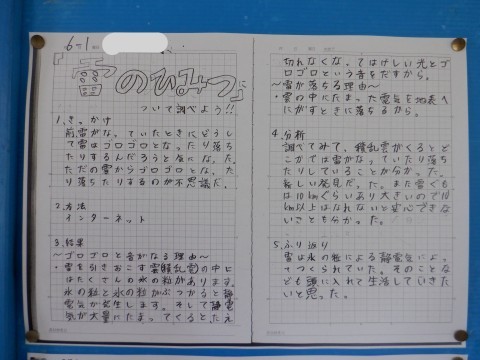 6年1組
「雷のひみつ」に
ついて調べよう!!
1.きっかけ
前、雷がなっていたときにどうし
て雷はゴロゴロとなったり落ち
たりするんだろうと気になった。
ただの雲からゴロゴロとなった
り落ちたりするのが不思議だ。
2.方法
インターネット
3.結果
〜ゴロゴロと音がなる理由〜
・雷を引きおこす雲(積乱雲)の中に
はたくさんの氷の粒があります。
氷の粒と氷の粒がぶつかると静
電気が発生します。そして静電
気が大量にたまってくると、たえ
切れなくなってはげしい光とゴ
ロゴロという音をだすから。
〜雷が落ちる理由〜
・雲の中にたまった電気を地表へ
にがすときに落ちるから。
4.分析
調べてみて、積乱雲がくるとど
こかでは雷がなっていたり落ち
たりしていることが分かった。
新しい発見だった。また雷ぐも
は10kmぐらいあり大きいので10
km以上はなれないと安心できな
いことも分かった。
5.ふり返り
雷は氷の粒による静電気によ
ってつくられていた。そのことな
ども頭に入れて生活していきた
いと思った。